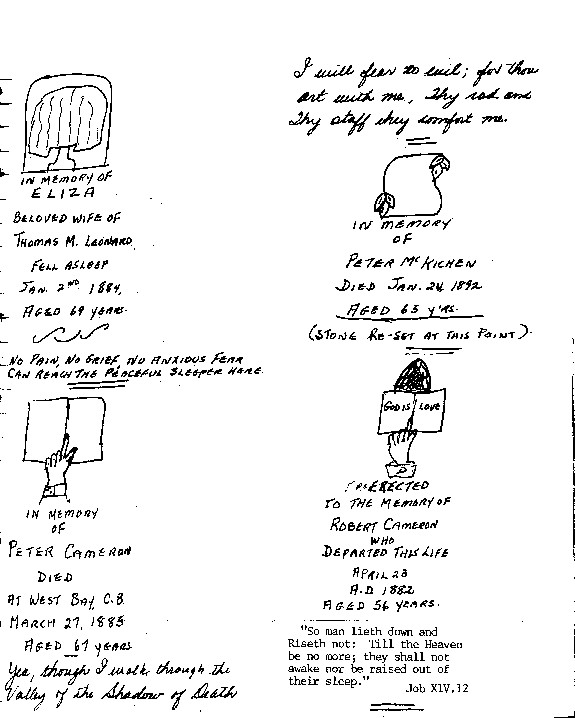 IN MEMORY OF
ELIZA
BELOVED WIFE OF
THOMAS M. LEONARD
FELL ASLEEP
JAN. 2ND 1884,
AGED 69 YEARS.
NO PAIN, NO GRIEF, NO ANXIOUS FEAR
CAN REACH THE PEACEFUL SLEEPER HERE.
IN MEMORY
OF
PETER CAMERON
DIED
AT WEST BAY, C.B.
MARCH 27, 1885
AGED 67 YEARS
Yea, though I walk through the
Valley of the Shadow of Death
I will fear no evil; for thou
art with me, Thy rod and
Thy staff they comfort me.
IN MEMORY
OF
PETER McKICHEN
DIED JAN. 24 1892
AGED 65 Y'RS.
(STONE RE-SET AT THIS POINT)
GOD IS LOVE
ERECTED
TO THE MEMORY OF
ROBERT CAMERON
WHO
DEPARTED THIS LIFE
APRIL 23
A.D 1882
AGED 56 YEARS.
"So man lieth down and
Riseth not: Till the Heaven
be no more; they shall not
awake nor be raised out of
their sleep."
Job XIV,12